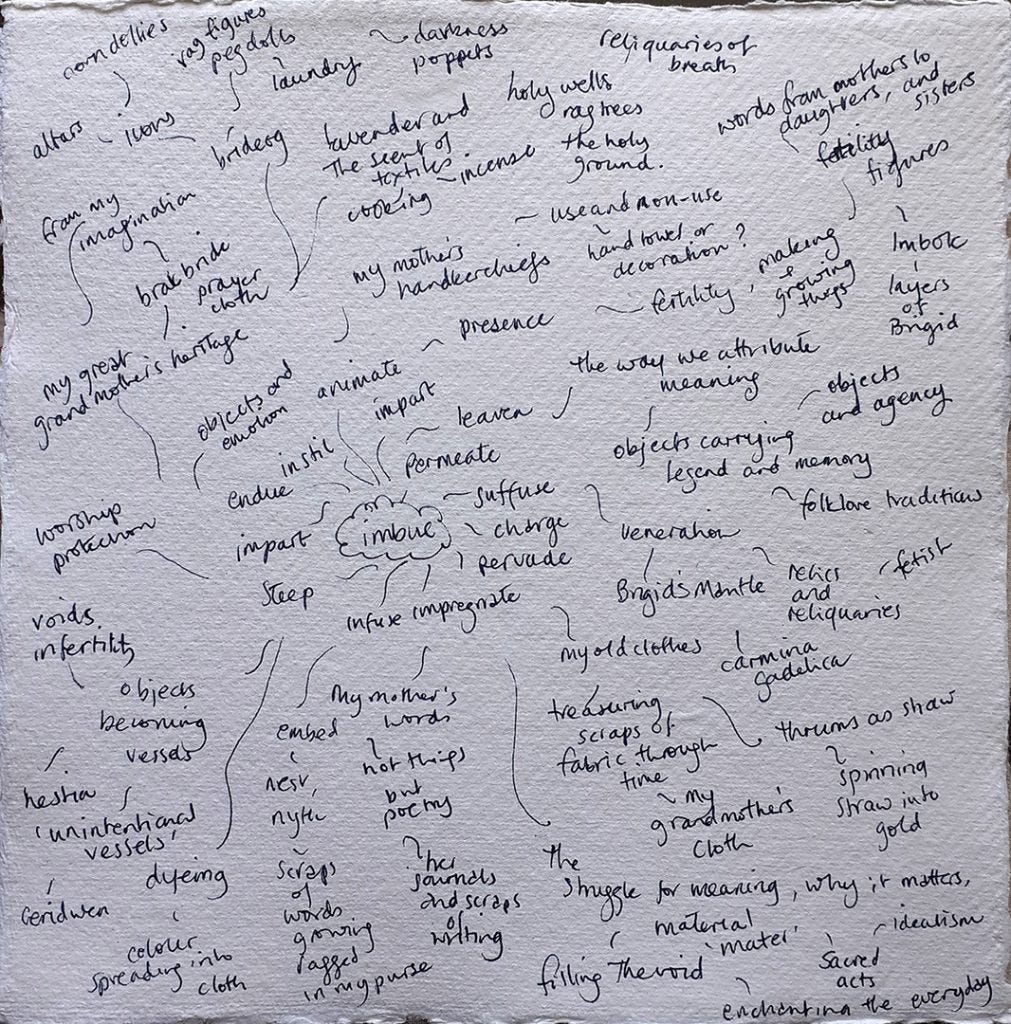 corn dollies
rag figures
peg dolls
laundry
~ darkness
poppets
reliquaries of
breath
altars
icons
brideog
lavender and
the scent of
textiles
cooking
~ incense
holy wells
rag trees
the holy
ground.
words from mothers to
daughters, and
sisters
fertility
figures
from my
imagination
brat bride
prayer
cloth
my mother's
handkerchiefs
~ use and non-use
hand towel or
decoration?
Imbolc
layers
of
Brigid
my great
grandmother's heritage
objects and
emotion
animate
~ presence
~ fertility, making
+
growing
things
the way we attribute
meaning
objects
and agency
impart
leaven
instil
endue
permeate
objects carrying
legend and memory
folklore traditions
worship
protection
impart
imbue
suffuse
charge
pervade
veneration
steep
infuse
impregnate
Brigid's Mantle
relics
and
reliquaries
~ fetish
carmina
gadelica
voids.
infertility
objects
becoming
vessels
hestia
'unintentional
vessels'
Ceridwen
dyeing
colour
spreading into
cloth
embed
nest,
nyth
scraps
of
words
growing
ragged
in my purse
my mother's
words
not things
but
poetry
her
journals
and scraps
of
writing
my old clothes
treasuring
scraps of
fabric through
time
~ my
grandmother's
cloth
thrums as straw
spinning
straw into
gold
the
struggle for meaning, why it matters,
material
'mater'
filling the void
sacred
acts
~ idealism
enchanting the everyday